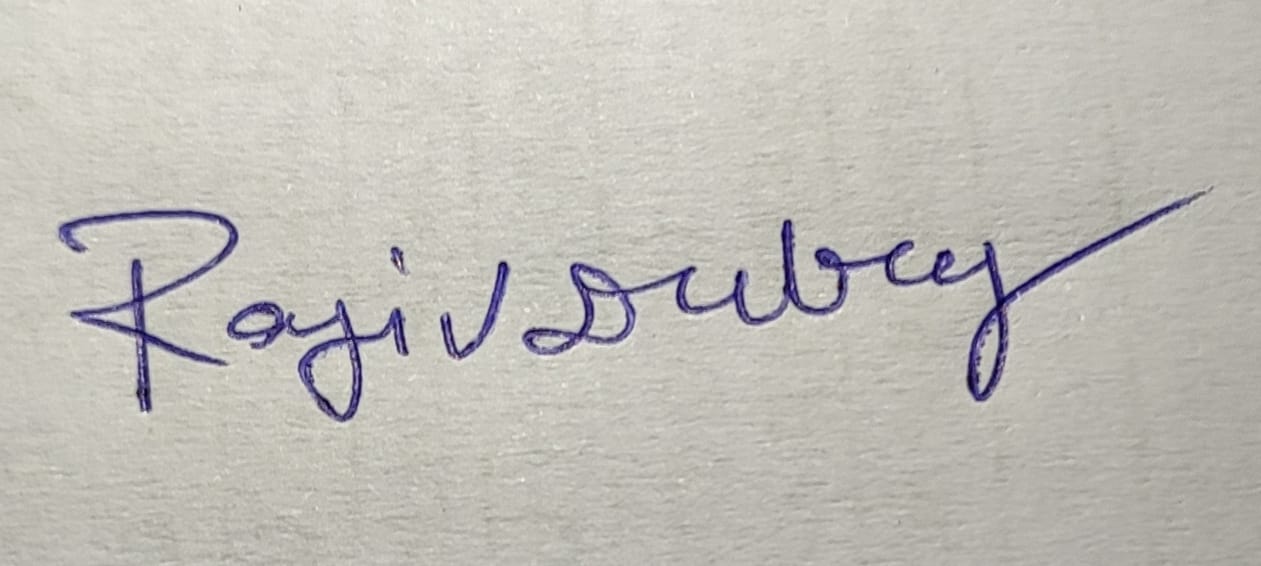 Rajiv Dubey